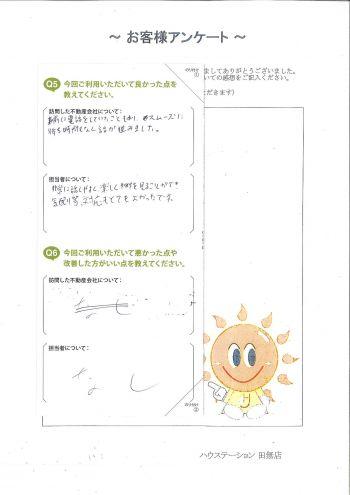 ～ お客様アンケート ～
ましてありがとうございました。
いての感想をご記入ください。
だきます)
Q5 今回ご利用いただいて良かった点を
教えてください。
訪問した不動産会社について：
事前に電話をしていたこともあり、スムーズに
待ち時間もなく話が進みました。
担当者について：
非常に話しやすく楽しく物件を見ることができ
Q6 今回ご利用いただいて悪かった点や
改善した方がいい点を教えてください。
訪問した不動産会社について：
なし
担当者について：
なし
ハウステーション 田無店